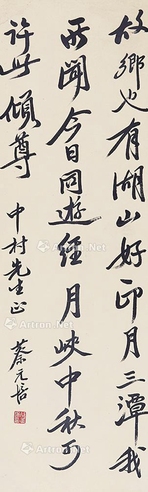 故鄉也有湖山好印月三潭我
所聞今日同遊經月峽中秋可
許共傾尊
中村先生正 蔡元培